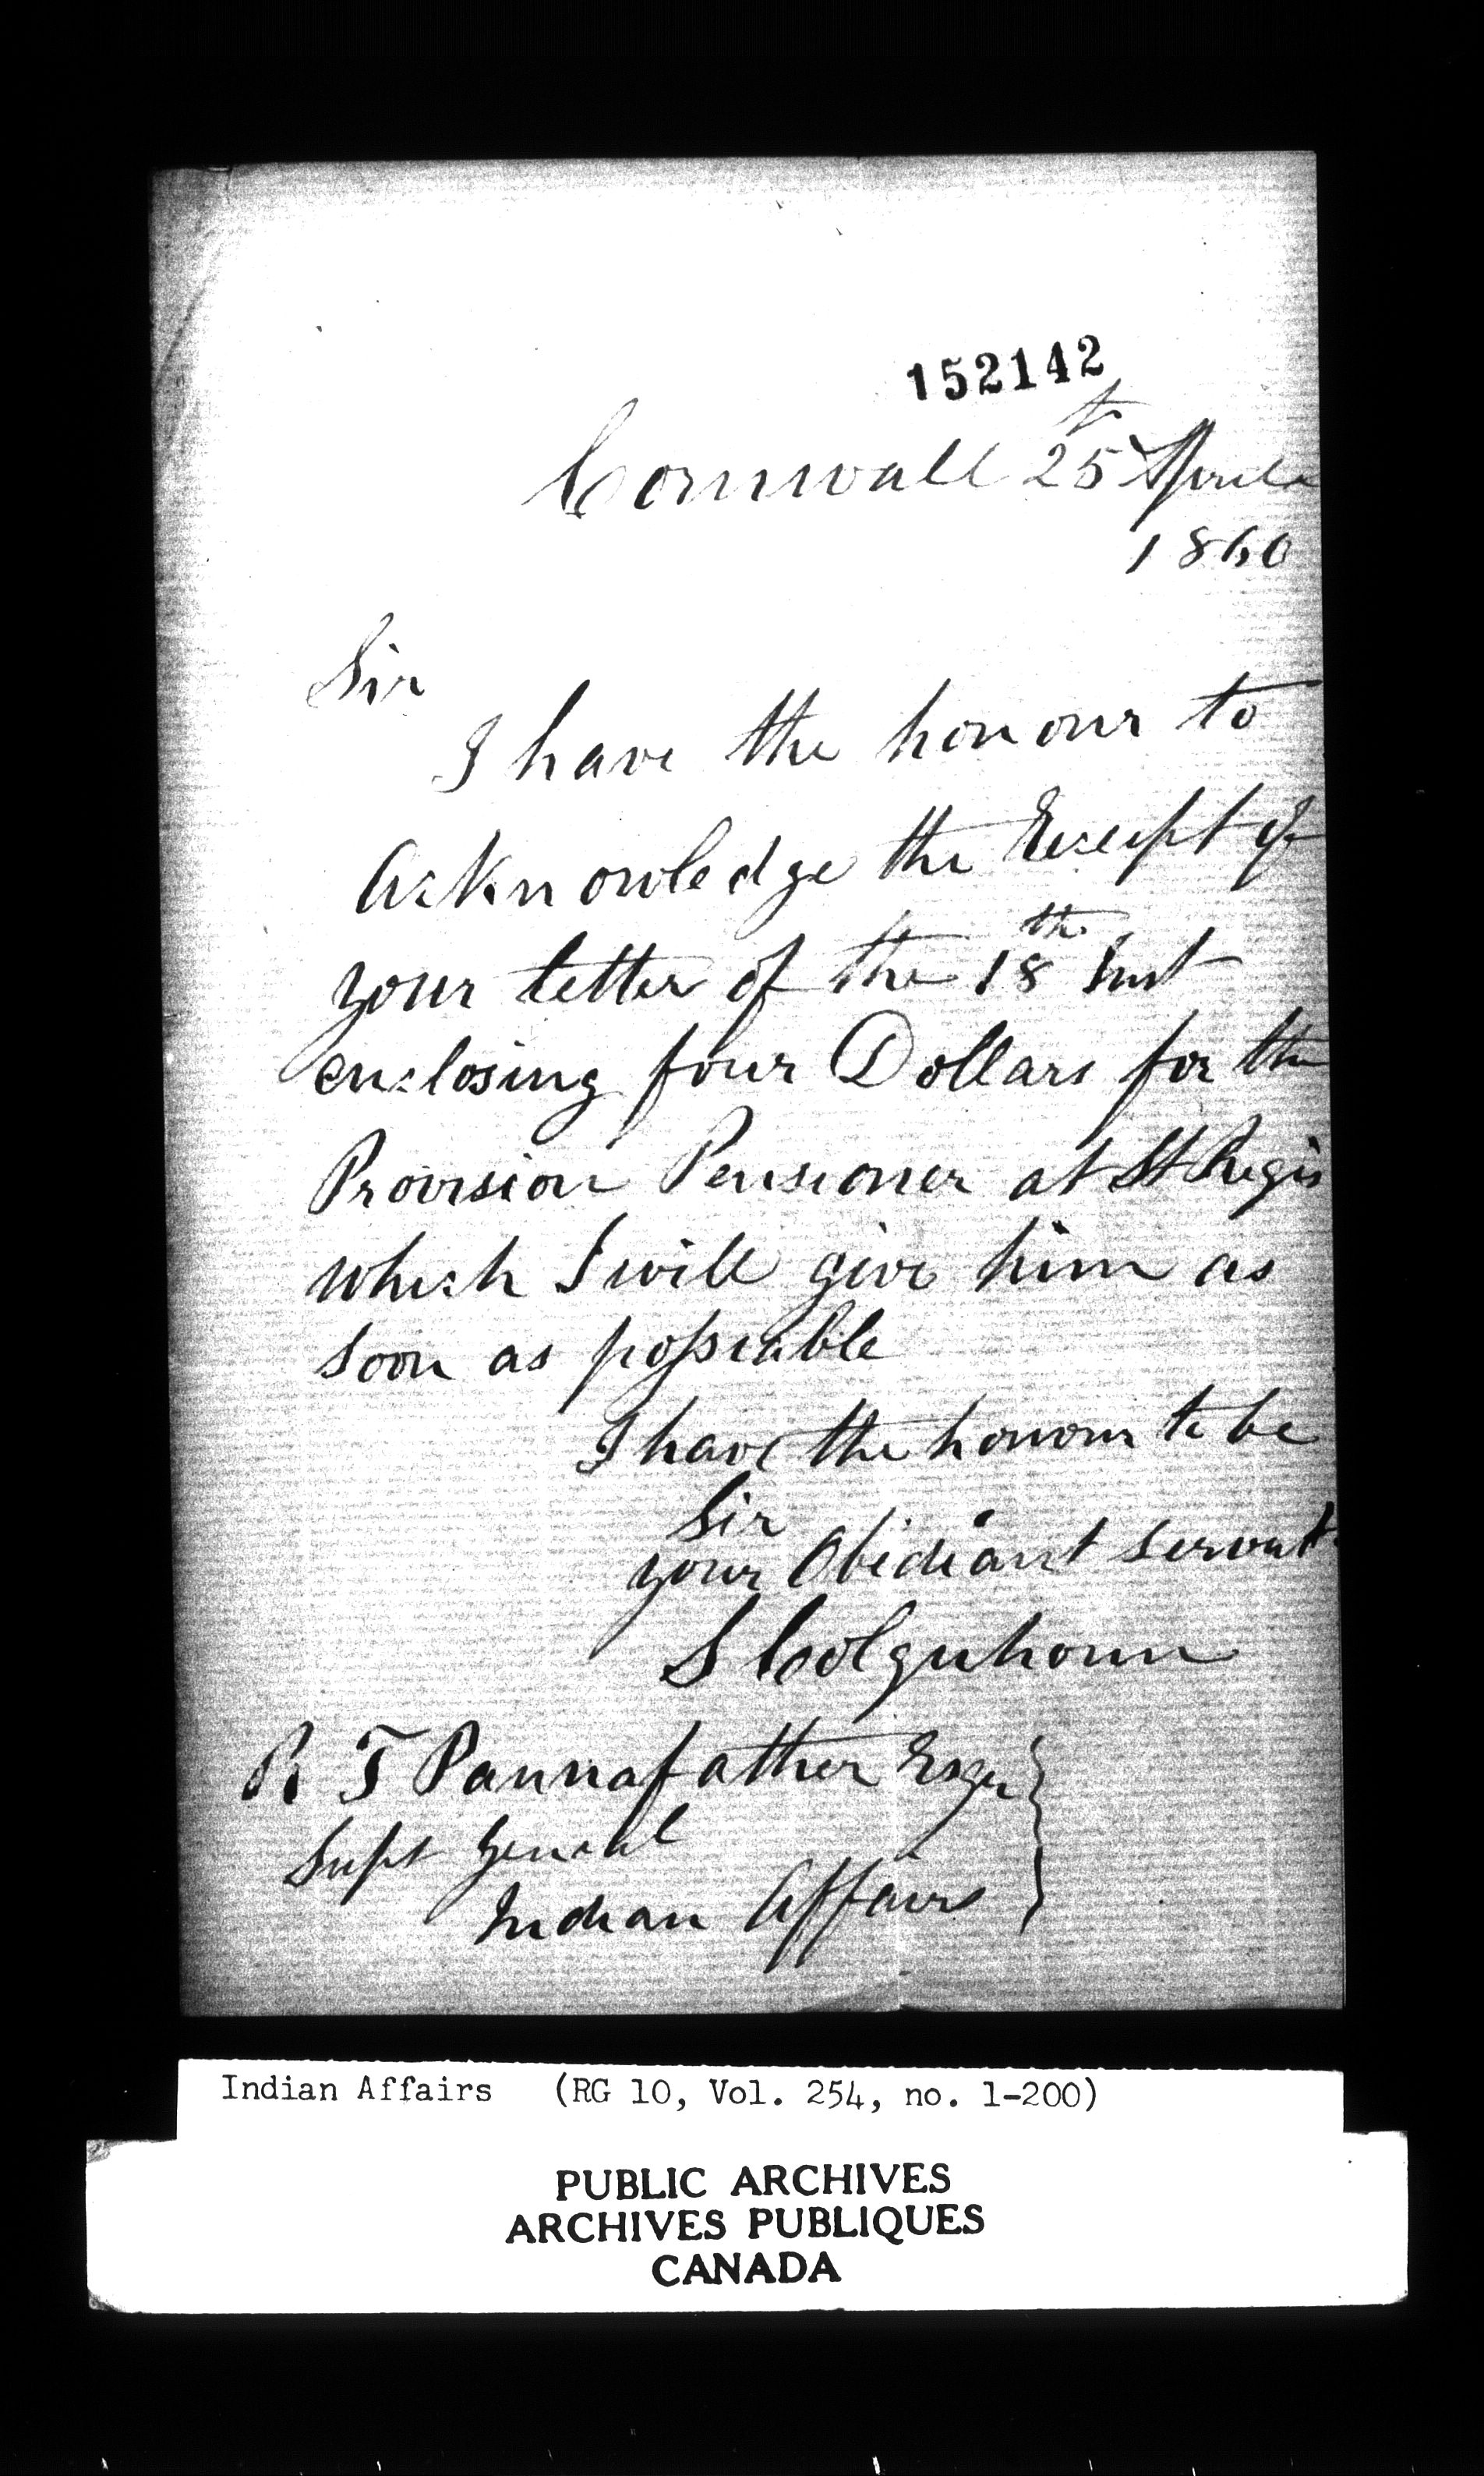 152142
Cornwall 25th April
1860
Sir
I have the honour to
Acknowledge the Receipt of
your letter of the 18th Inst
enclosing four Dollars for the
Provision Pensioner at St Regis
which I will give him as
soon as possiable
I have the honour to be
Sir
your Obidiant servat
S Colquhoun
R T Pannafather Esqr
Supt Genral
Indian Affairs
Indian Affairs (RG 10, Vol. 254, no. 1-200)
PUBLIC ARCHIVES
ARCHIVES PUBLIQUES
CANADA